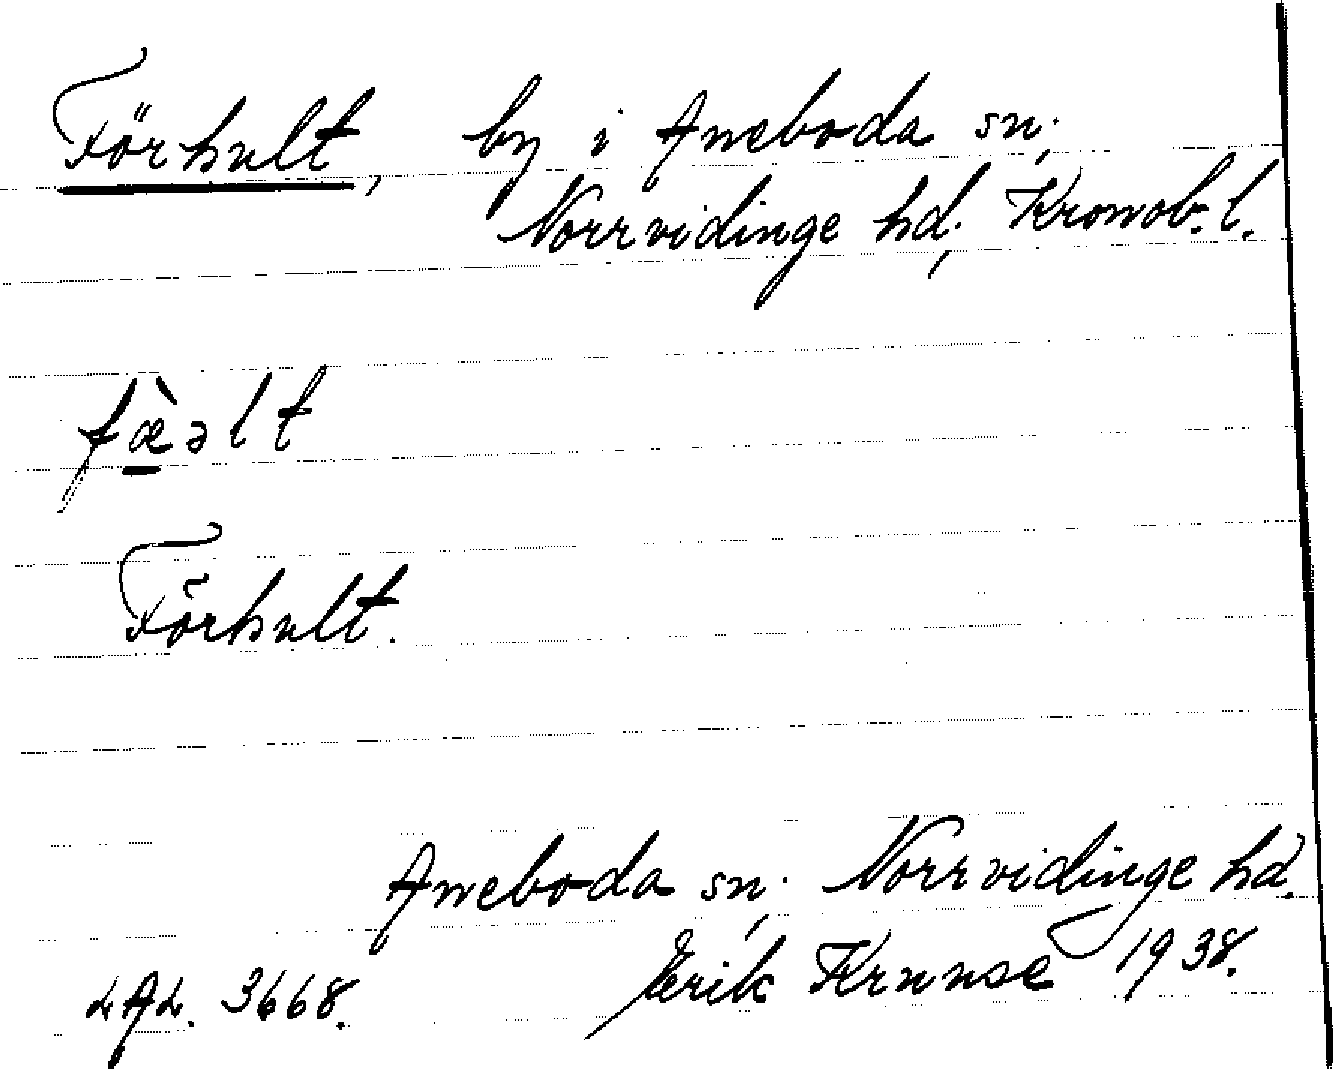 Förhult, by i Aneboda sn,
Norrvidinge hd, Kronob. l.
fæ̱̀əlt
Förhult.
Aneboda sn, Norrvidinge hd.
LAL. 3668. Erik Kruuse 1938.